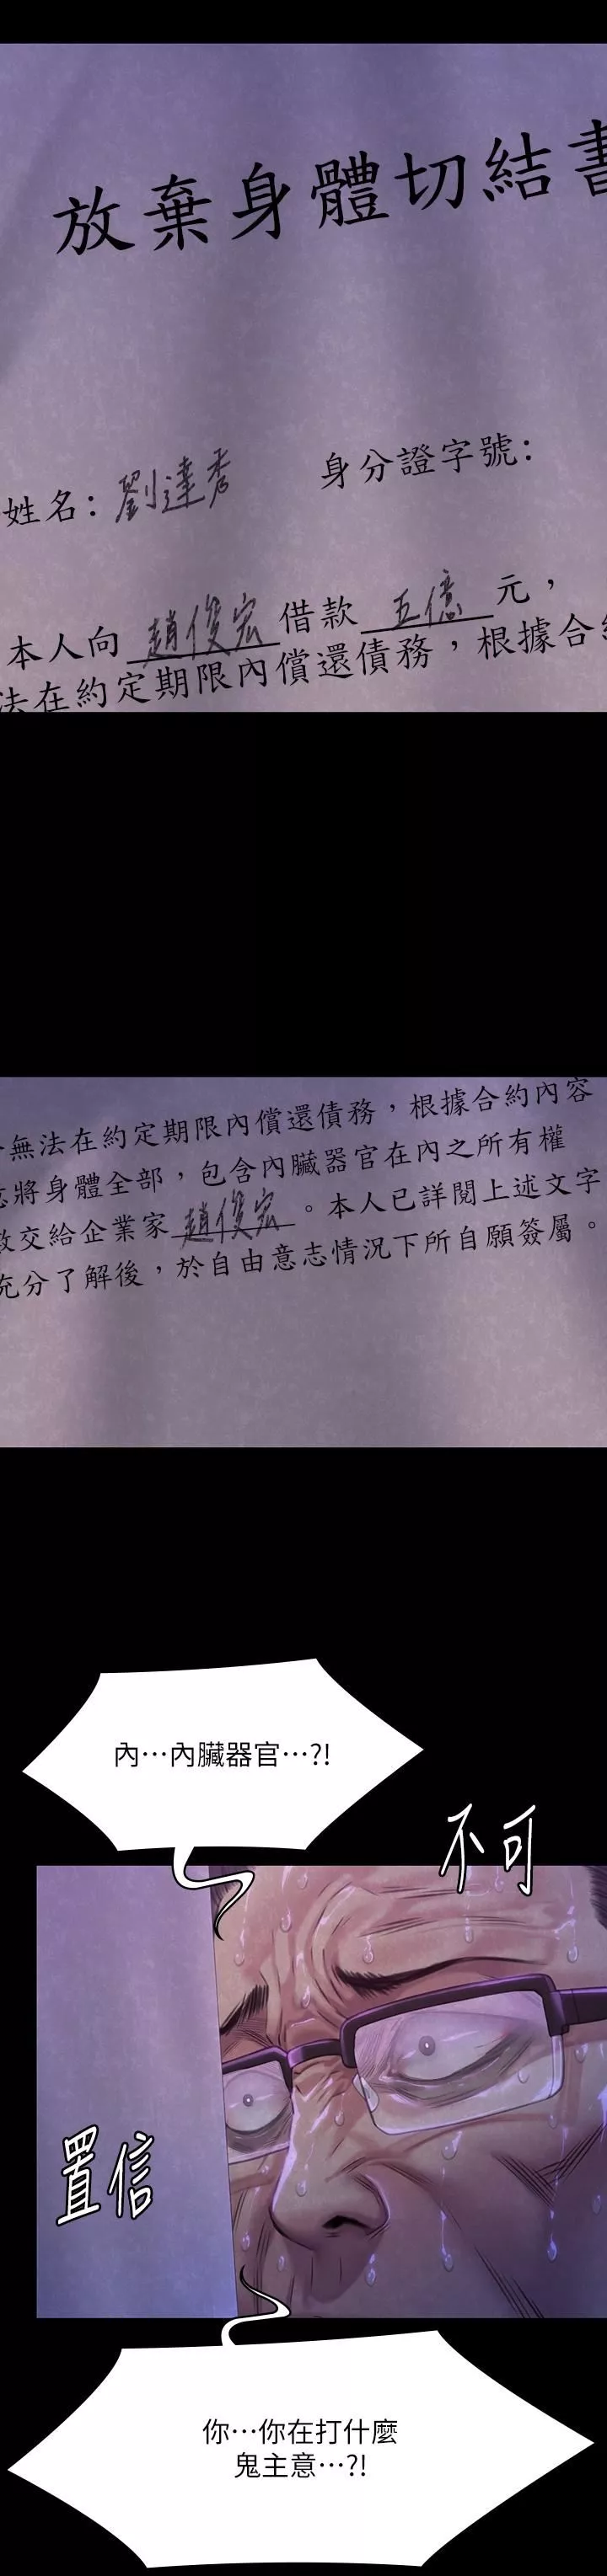 放棄身體切結書
姓名：劉達秀 身分證字號：
本人向 趙俊宏 借款 五億 元，
法在約定期限內償還債務，根據合約
無法在約定期限內償還債務，根據合約內容
志將身體全部，包含內臟器官在內之所有權
交給企業家 趙俊宏 。本人已詳閱上述文字
充分了解後，於自由意志情況下所自願簽屬。
內…內臟器官…?!
不可
置信
你…你在打什麼
鬼主意…?!